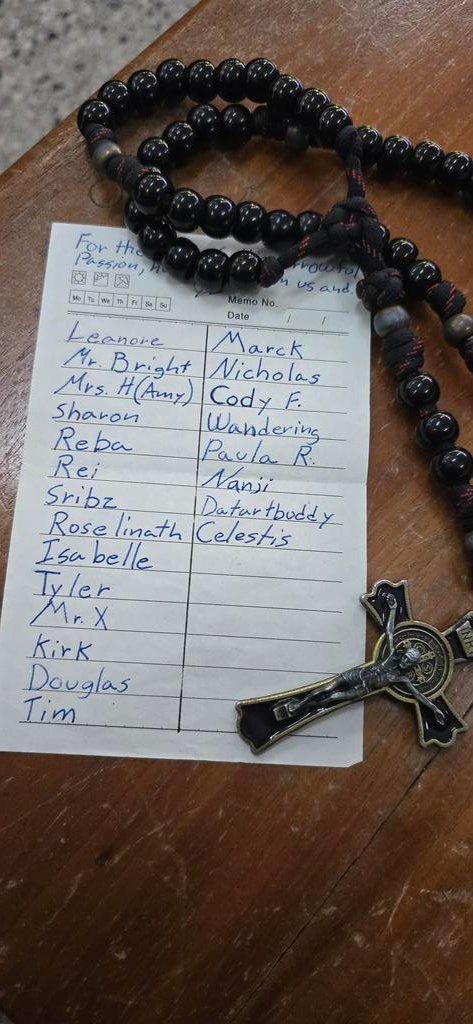 For the
Passion, us and
Mo Tu We Th Fr Sa Su
Memo No.
Date / /
Leanore
Mr. Bright
Mrs. H(Amy)
Sharon
Reba
Rei
Sribz
Roselinath
Isabelle
Tyler
Mr. X
Kirk
Douglas
Tim
Marck
Nicholas
Cody F.
Wandering
Paula R.
Nanji
Datartbuddy
Celestis